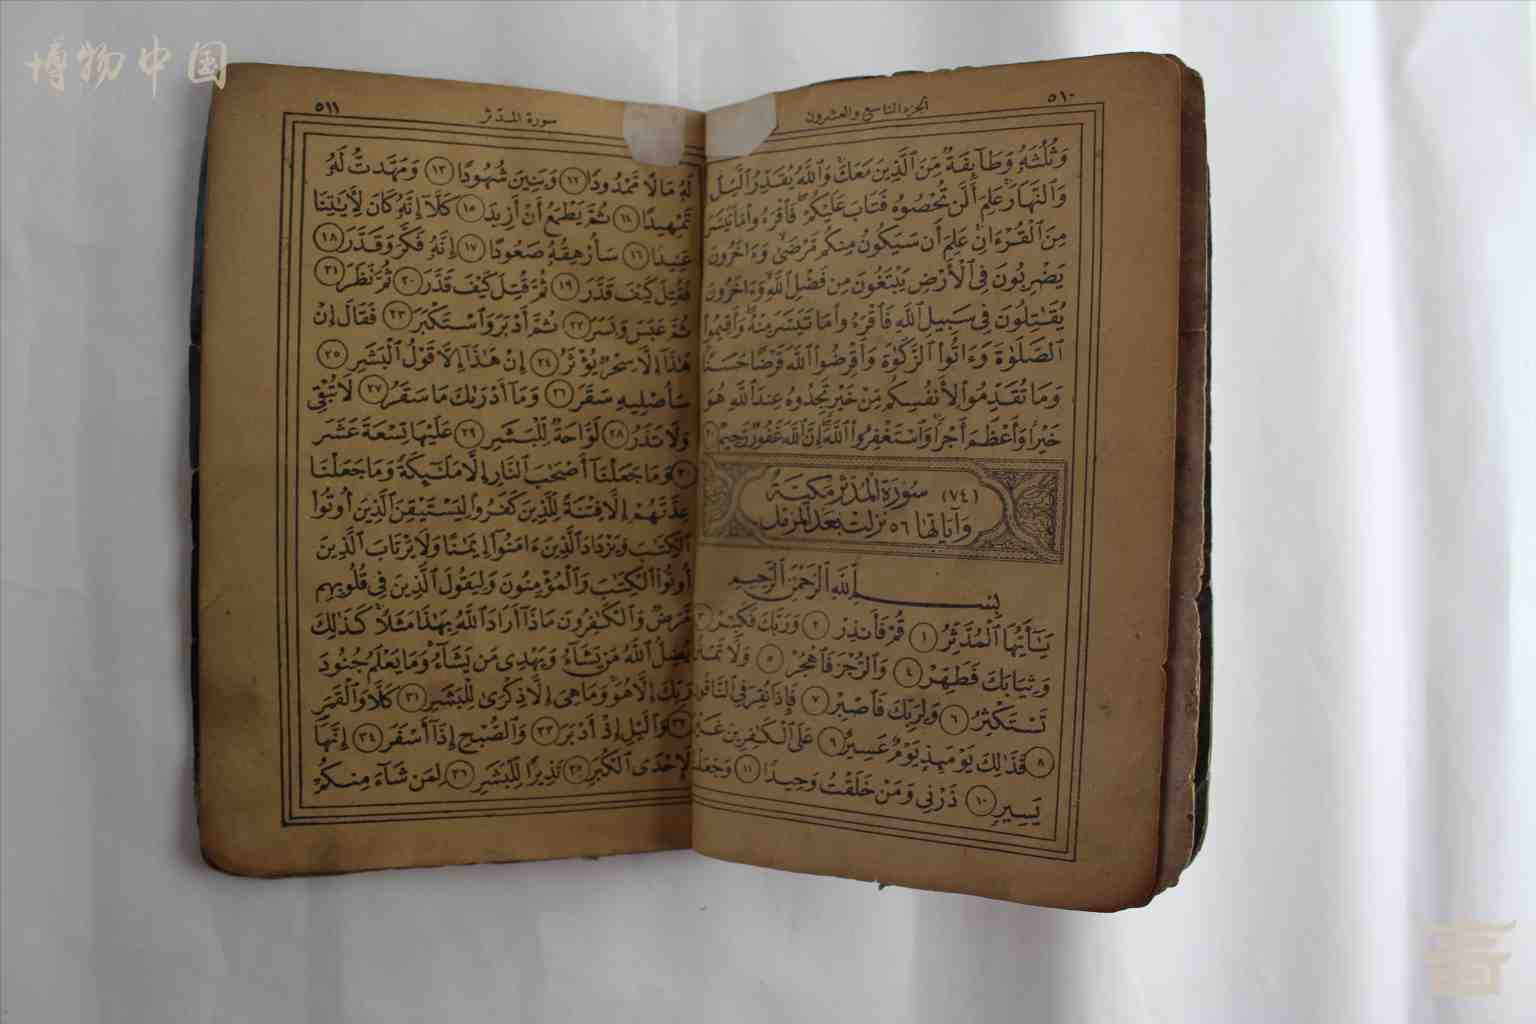 博物中国
٥١٠
الجزء التاسع والعشرون
وَثُلُثَهُۥ وَطَآئِفَةٌ مِّنَ ٱلَّذِينَ مَعَكَ وَٱللَّهُ يُقَدِّرُ ٱلَّيْلَ
وَٱلنَّهَارَ عَلِمَ أَن لَّن تُحْصُوهُ فَتَابَ عَلَيْكُمْ فَٱقْرَءُوا۟ مَا تَيَسَّرَ
مِنَ ٱلْقُرْءَانِ عَلِمَ أَن سَيَكُونُ مِنكُم مَّرْضَىٰ وَءَاخَرُونَ
يَضْرِبُونَ فِى ٱلْأَرْضِ يَبْتَغُونَ مِن فَضْلِ ٱللَّهِ وَءَاخَرُونَ
يُقَٰتِلُونَ فِى سَبِيلِ ٱللَّهِ فَٱقْرَءُوا۟ مَا تَيَسَّرَ مِنْهُ وَأَقِيمُوا۟
ٱلصَّلَوٰةَ وَءَاتُوا۟ ٱلزَّكَوٰةَ وَأَقْرِضُوا۟ ٱللَّهَ قَرْضًا حَسَنًا
وَمَا تُقَدِّمُوا۟ لِأَنفُسِكُم مِّنْ خَيْرٍ تَجِدُوهُ عِندَ ٱللَّهِ هُوَ
خَيْرًا وَأَعْظَمَ أَجْرًا وَٱسْتَغْفِرُوا۟ ٱللَّهَ إِنَّ ٱللَّهَ غَفُورٌ رَّحِيمٌ
(٧٤) سُورَةِ الْمُدَّثِّرِ مَكِّيَّةٌ
وَآيَاتُهَا ٥٦ نَزَلَتْ بَعْدَ الْمُزَّمِّلِ
بِسْمِ ٱللَّهِ ٱلرَّحْمَٰنِ ٱلرَّحِيمِ
يَٰٓأَيُّهَا ٱلْمُدَّثِّرُ ١ قُمْ فَأَنذِرْ ٢ وَرَبَّكَ فَكَبِّرْ ٣
وَثِيَابَكَ فَطَهِّرْ ٤ وَٱلرُّجْزَ فَٱهْجُرْ ٥ وَلَا تَمْنُن
تَسْتَكْثِرُ ٦ وَلِرَبِّكَ فَٱصْبِرْ ٧ فَإِذَا نُقِرَ فِى ٱلنَّاقُورِ
٨ فَذَٰلِكَ يَوْمَئِذٍ يَوْمٌ عَسِيرٌ ٩ عَلَى ٱلْكَٰفِرِينَ غَيْرُ
يَسِيرٍ ١٠ ذَرْنِى وَمَنْ خَلَقْتُ وَحِيدًا ١١ وَجَعَلْتُ
٥١١
سورة المدّثر
لَهُۥ مَالًا مَّمْدُودًا ١٢ وَبَنِينَ شُهُودًا ١٣ وَمَهَّدتُّ لَهُۥ
تَمْهِيدًا ١٤ ثُمَّ يَطْمَعُ أَنْ أَزِيدَ ١٥ كَلَّآ إِنَّهُۥ كَانَ لِأَيَٰتِنَا
عَنِيدًا ١٦ سَأُرْهِقُهُۥ صَعُودًا ١٧ إِنَّهُۥ فَكَّرَ وَقَدَّرَ ١٨
فَقُتِلَ كَيْفَ قَدَّرَ ١٩ ثُمَّ قُتِلَ كَيْفَ قَدَّرَ ٢٠ ثُمَّ نَظَرَ ٢١
ثُمَّ عَبَسَ وَبَسَرَ ٢٢ ثُمَّ أَدْبَرَ وَٱسْتَكْبَرَ ٢٣ فَقَالَ إِنْ
هَٰذَآ إِلَّا سِحْرٌ يُؤْثَرُ ٢٤ إِنْ هَٰذَآ إِلَّا قَوْلُ ٱلْبَشَرِ ٢٥
سَأُصْلِيهِ سَقَرَ ٢٦ وَمَآ أَدْرَىٰكَ مَا سَقَرُ ٢٧ لَا تُبْقِى
وَلَا تَذَرُ ٢٨ لَوَّاحَةٌ لِّلْبَشَرِ ٢٩ عَلَيْهَا تِسْعَةَ عَشَرَ
٣٠ وَمَا جَعَلْنَآ أَصْحَٰبَ ٱلنَّارِ إِلَّا مَلَٰٓئِكَةً وَمَا جَعَلْنَا
عِدَّتَهُمْ إِلَّا فِتْنَةً لِّلَّذِينَ كَفَرُوا۟ لِيَسْتَيْقِنَ ٱلَّذِينَ أُوتُوا۟
ٱلْكِتَٰبَ وَيَزْدَادَ ٱلَّذِينَ ءَامَنُوٓا۟ إِيمَٰنًا وَلَا يَرْتَابَ ٱلَّذِينَ
أُوتُوا۟ ٱلْكِتَٰبَ وَٱلْمُؤْمِنُونَ وَلِيَقُولَ ٱلَّذِينَ فِى قُلُوبِهِم
مَّرَضٌ وَٱلْكَٰفِرُونَ مَاذَآ أَرَادَ ٱللَّهُ بِهَٰذَا مَثَلًا كَذَٰلِكَ
يُضِلُّ ٱللَّهُ مَن يَشَآءُ وَيَهْدِى مَن يَشَآءُ وَمَا يَعْلَمُ جُنُودَ
رَبِّكَ إِلَّا هُوَ وَمَا هِىَ إِلَّا ذِكْرَىٰ لِلْبَشَرِ ٣١ كَلَّا وَٱلْقَمَرِ
٣٢ وَٱلَّيْلِ إِذْ أَدْبَرَ ٣٣ وَٱلصُّبْحِ إِذَآ أَسْفَرَ ٣٤ إِنَّهَا
لَإِحْدَى ٱلْكُبَرِ ٣٥ نَذِيرًا لِّلْبَشَرِ ٣٦ لِمَن شَآءَ مِنكُمْ